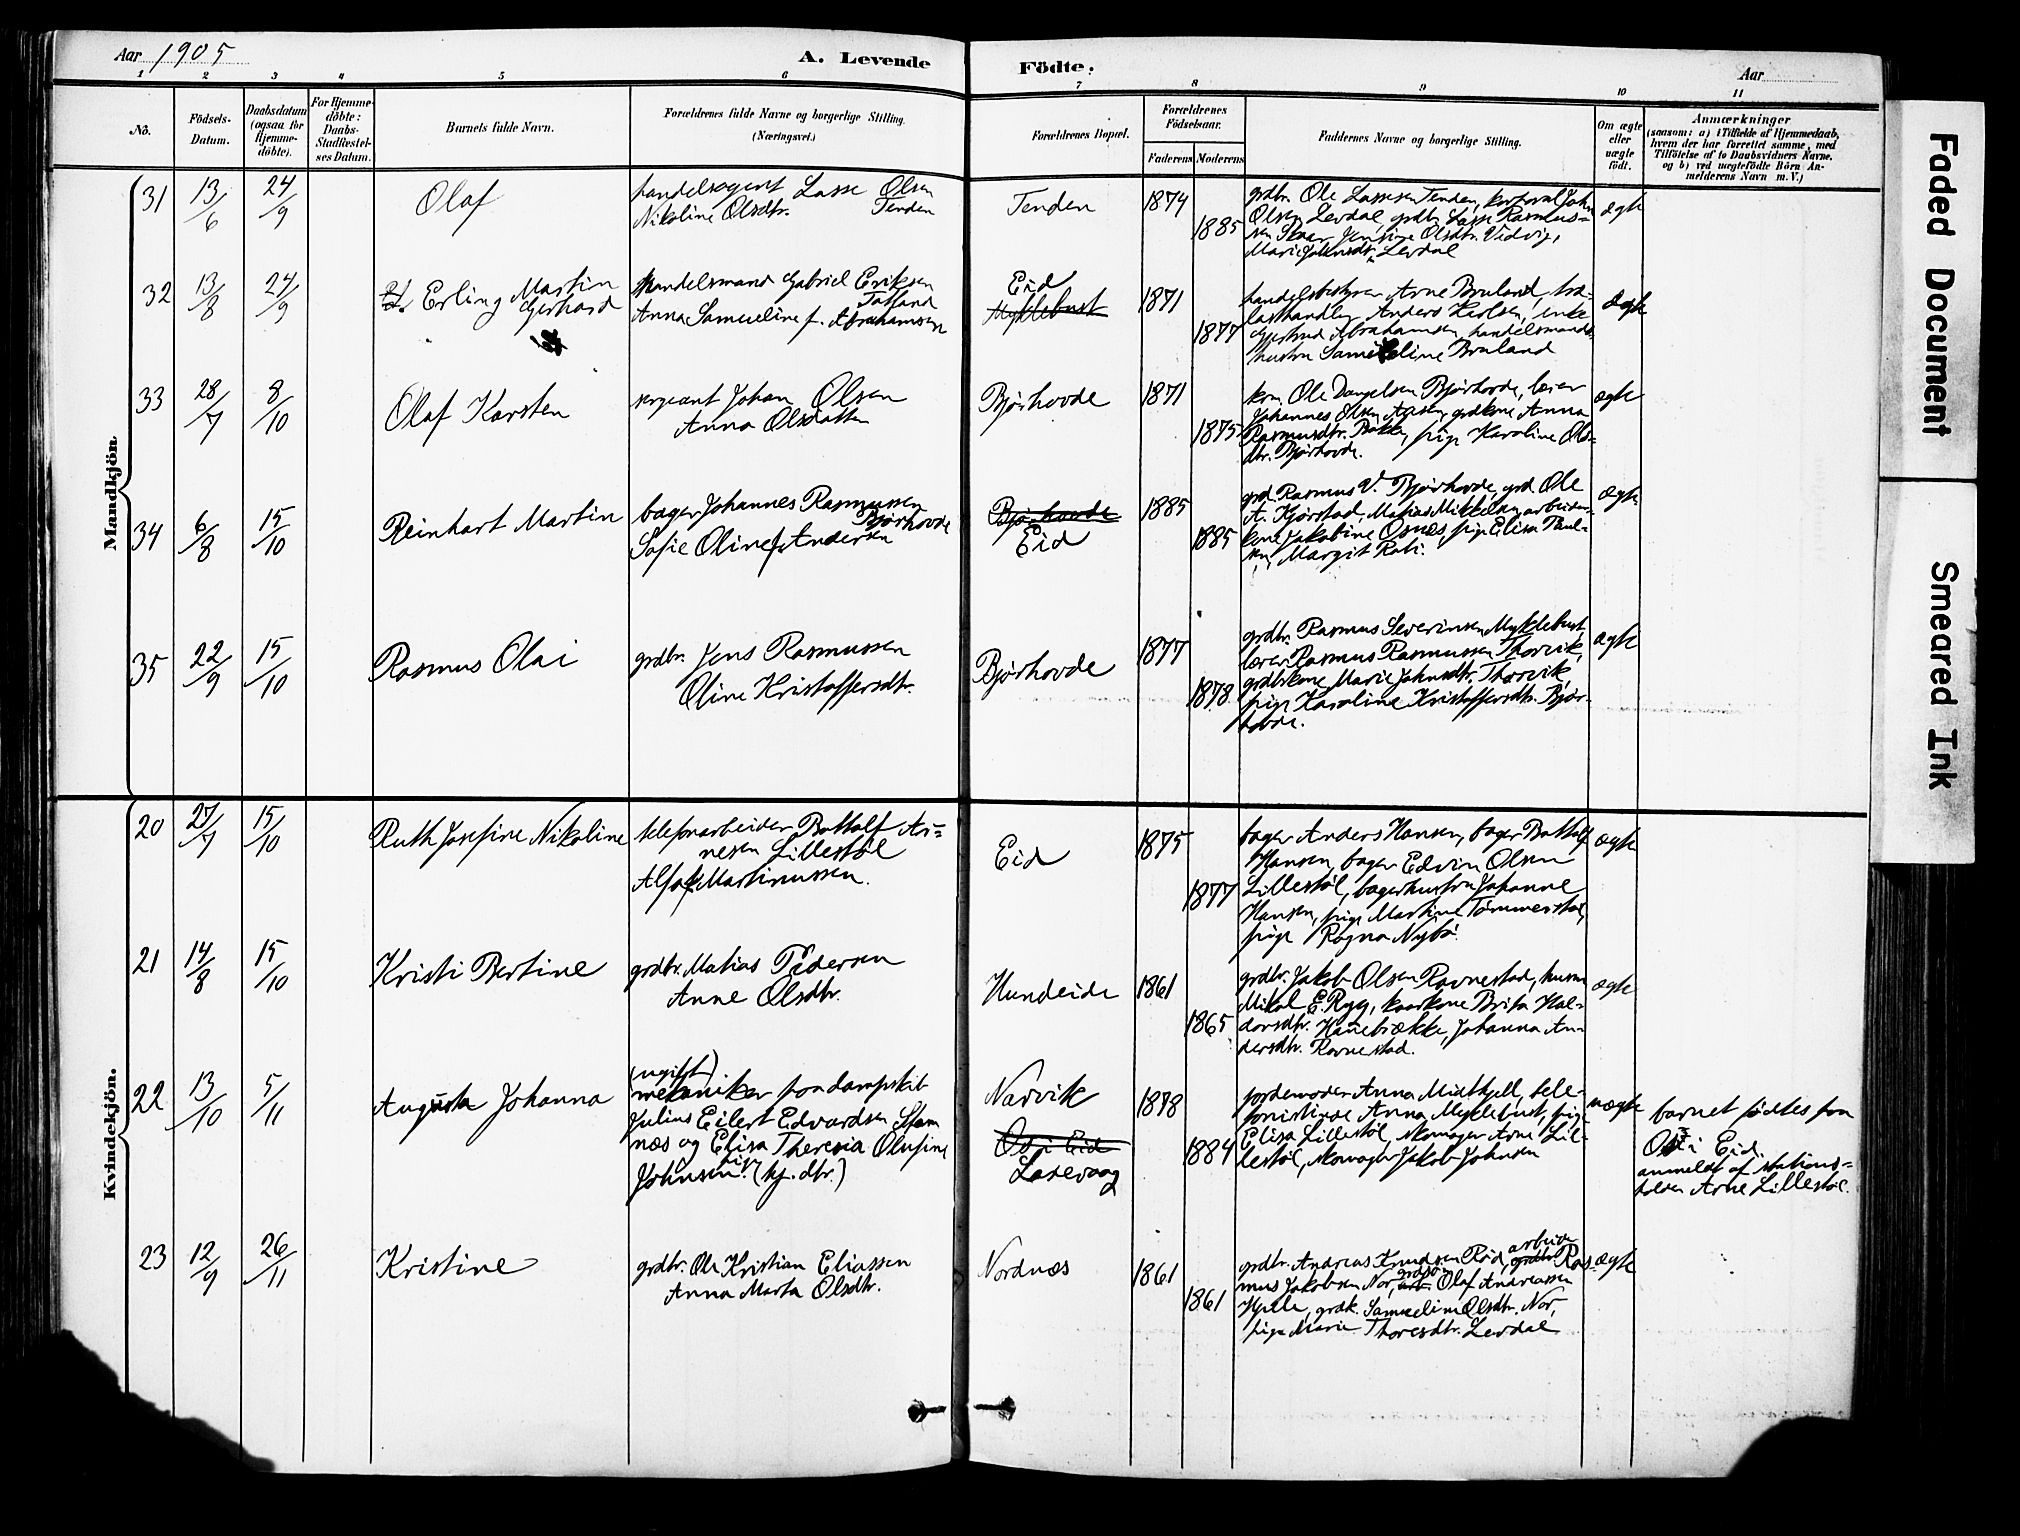 Aar 1905
A. Levende
Födte.
Aar
1 2 3 4 5 6 7 8 9 10 11
Nô.
Födsels-
Datum.
Daabsdatum
(ogsaa for
Hjemme-
döbte).
For Hjemme-
döbte:
Daabs-
Stadfæstel-
ses Datum.
Barnets fulde Navn.
Forældrenes fulde Navne og borgerlige Stilling.
(Næringsvei.)
Forældrenes Bopæl.
Forældrenes
Födselsaar.
Faderens Moderens
Faddernes Navne og borgerlige Stilling.
Om ægte
eller
uægte
födt.
Anmærkninger
(saasom: a) i Tilfælde af Hjemmedaab,
hvem der har forrettet samme, med
Tilföielse af to Daabsvidners Navne.
og b) ved uægtefödte Börn An-
melderens Navn m. V.)
Mandkjön
31 13/6 24/9 Olaf
handelsagent Lasse Olsen
Nikoline Olsdtr. Tenden
Tenden
1874
1885
grdbr. Ole Lassesen Tenden, korporal John
Olsen Levdal, grdbr. Lasse Rasmus-
sen Skaar Jensine Olsdtr. Vedvig,
Marie Johnsdtr. Levdal
ægte
32 13/8 24/9 Erling Martin
Gerhard
handelsmand Gabriel Eriksen
Tatland
Anna Samueline f. Abrahamsen
Eid
Myklebust
1871
1877
handelsbestyrer Arne Bruland, træ-
lasthandler Anders Karlsen, enke
Gjertrud Abrahamsen, handelsmands
hustru Samueline Bruland
ægte
33 28/7 8/10 Olaf Karsten
sergeant Johan Olsen
Anna Olsdatter
Bjørhovde
1871
1875
krm. Ole Danielsen Bjørhovde, leier
Johannes Olsen Aasen, grdkone Anna
Rasmusdtr. Bakke, pige Karoline Ols-
dtr. Bjørhovde.
ægte
34 6/8 15/10 Reinhart Martin
bager Johannes Rasmussen
Bjørhovde
Sofie Oline f. Andersen
Bjørhovde
Eid
1885
1885
grd. Rasmus V. Bjørhovde, grd. Ole
A. Kjørstad, Matias Mikkelsen arbeider-
kone Jakobine Osnes, pige Elisa Paul-
sen, Margit Roti.
ægte
35 22/9 15/10 Rasmus Olai
grdbr. Jens Rasmussen
Oline Kristoffersdtr.
Bjørhovde
1877
1878
grdbr. Rasmus Severinsen Myklebust
leier Rasmus Rasmussen Thorvik,
grdbrkone Marie Johnsdtr. Thorvik,
pige Karoline Kristoffersdtr. Bjør-
hovde.
ægte
Kvindekjön.
20 27/7 15/10 Ruth Josefine Nikoline
telefonarbeider Bottolf Ar-
nesen Lillestøl
Alfa f. Martinussen.
Eid
1875
1877
bager Anders Hansen, bager Bottolf
Hansen, bager Edvin Olsen
Lillestøl, bagerhustru Johanne
Hansen, pige Martine Tømmerstøl,
pige Ragna Nybø.
ægte
21 14/8 15/10 Kristi Bertine
grdbr. Matias Pedersen
Anne Olsdtr.
Hundeide
1861
1865
grdbr. Jakob Olsen Ravnestad, husm
Mikal E. Ryg, kaarkone Brita Hal-
dorsdtr. Hanebrække, Johanna An-
dersdtr. Ravnestad.
ægte
22 13/10 5/11 Augusta Johanna
(ugift)
mekaniker paa dampskib
Julius Eilert Edvardsen Stam
næs og Elisa Theresia Olufine
Johnsen (hj. dtr.)
Narvik
Os i Eid
Laxevaag
1878
1884
jordemoder Anna Midthjell, tele-
fonistinde Anna Myklebust, pige
Elisa Lillestøl, skomager Arne Lil-
lestøl, skomager Jakob Johnsen
uægte
barnet fødtes paa
Os i Eid.
anmeldt af stations-
holder Arne Lillestøl.
23 12/9 26/11 Kristine
grdbr. Ole Kristian Eliassen
Anna Marta Olsdtr.
Nordnæs
1861
1861
arbeider
grdbr. Andreas Knudsen Rød, grdbr Ras-
mus Jakobsen Nor, grdsøn Olaf Andreassen
Hjelle, grdk. Samueline Olsdtr. Nor,
pige Marie Thoresdtr. Levdal
ægte
Faded Document
Smeared Ink